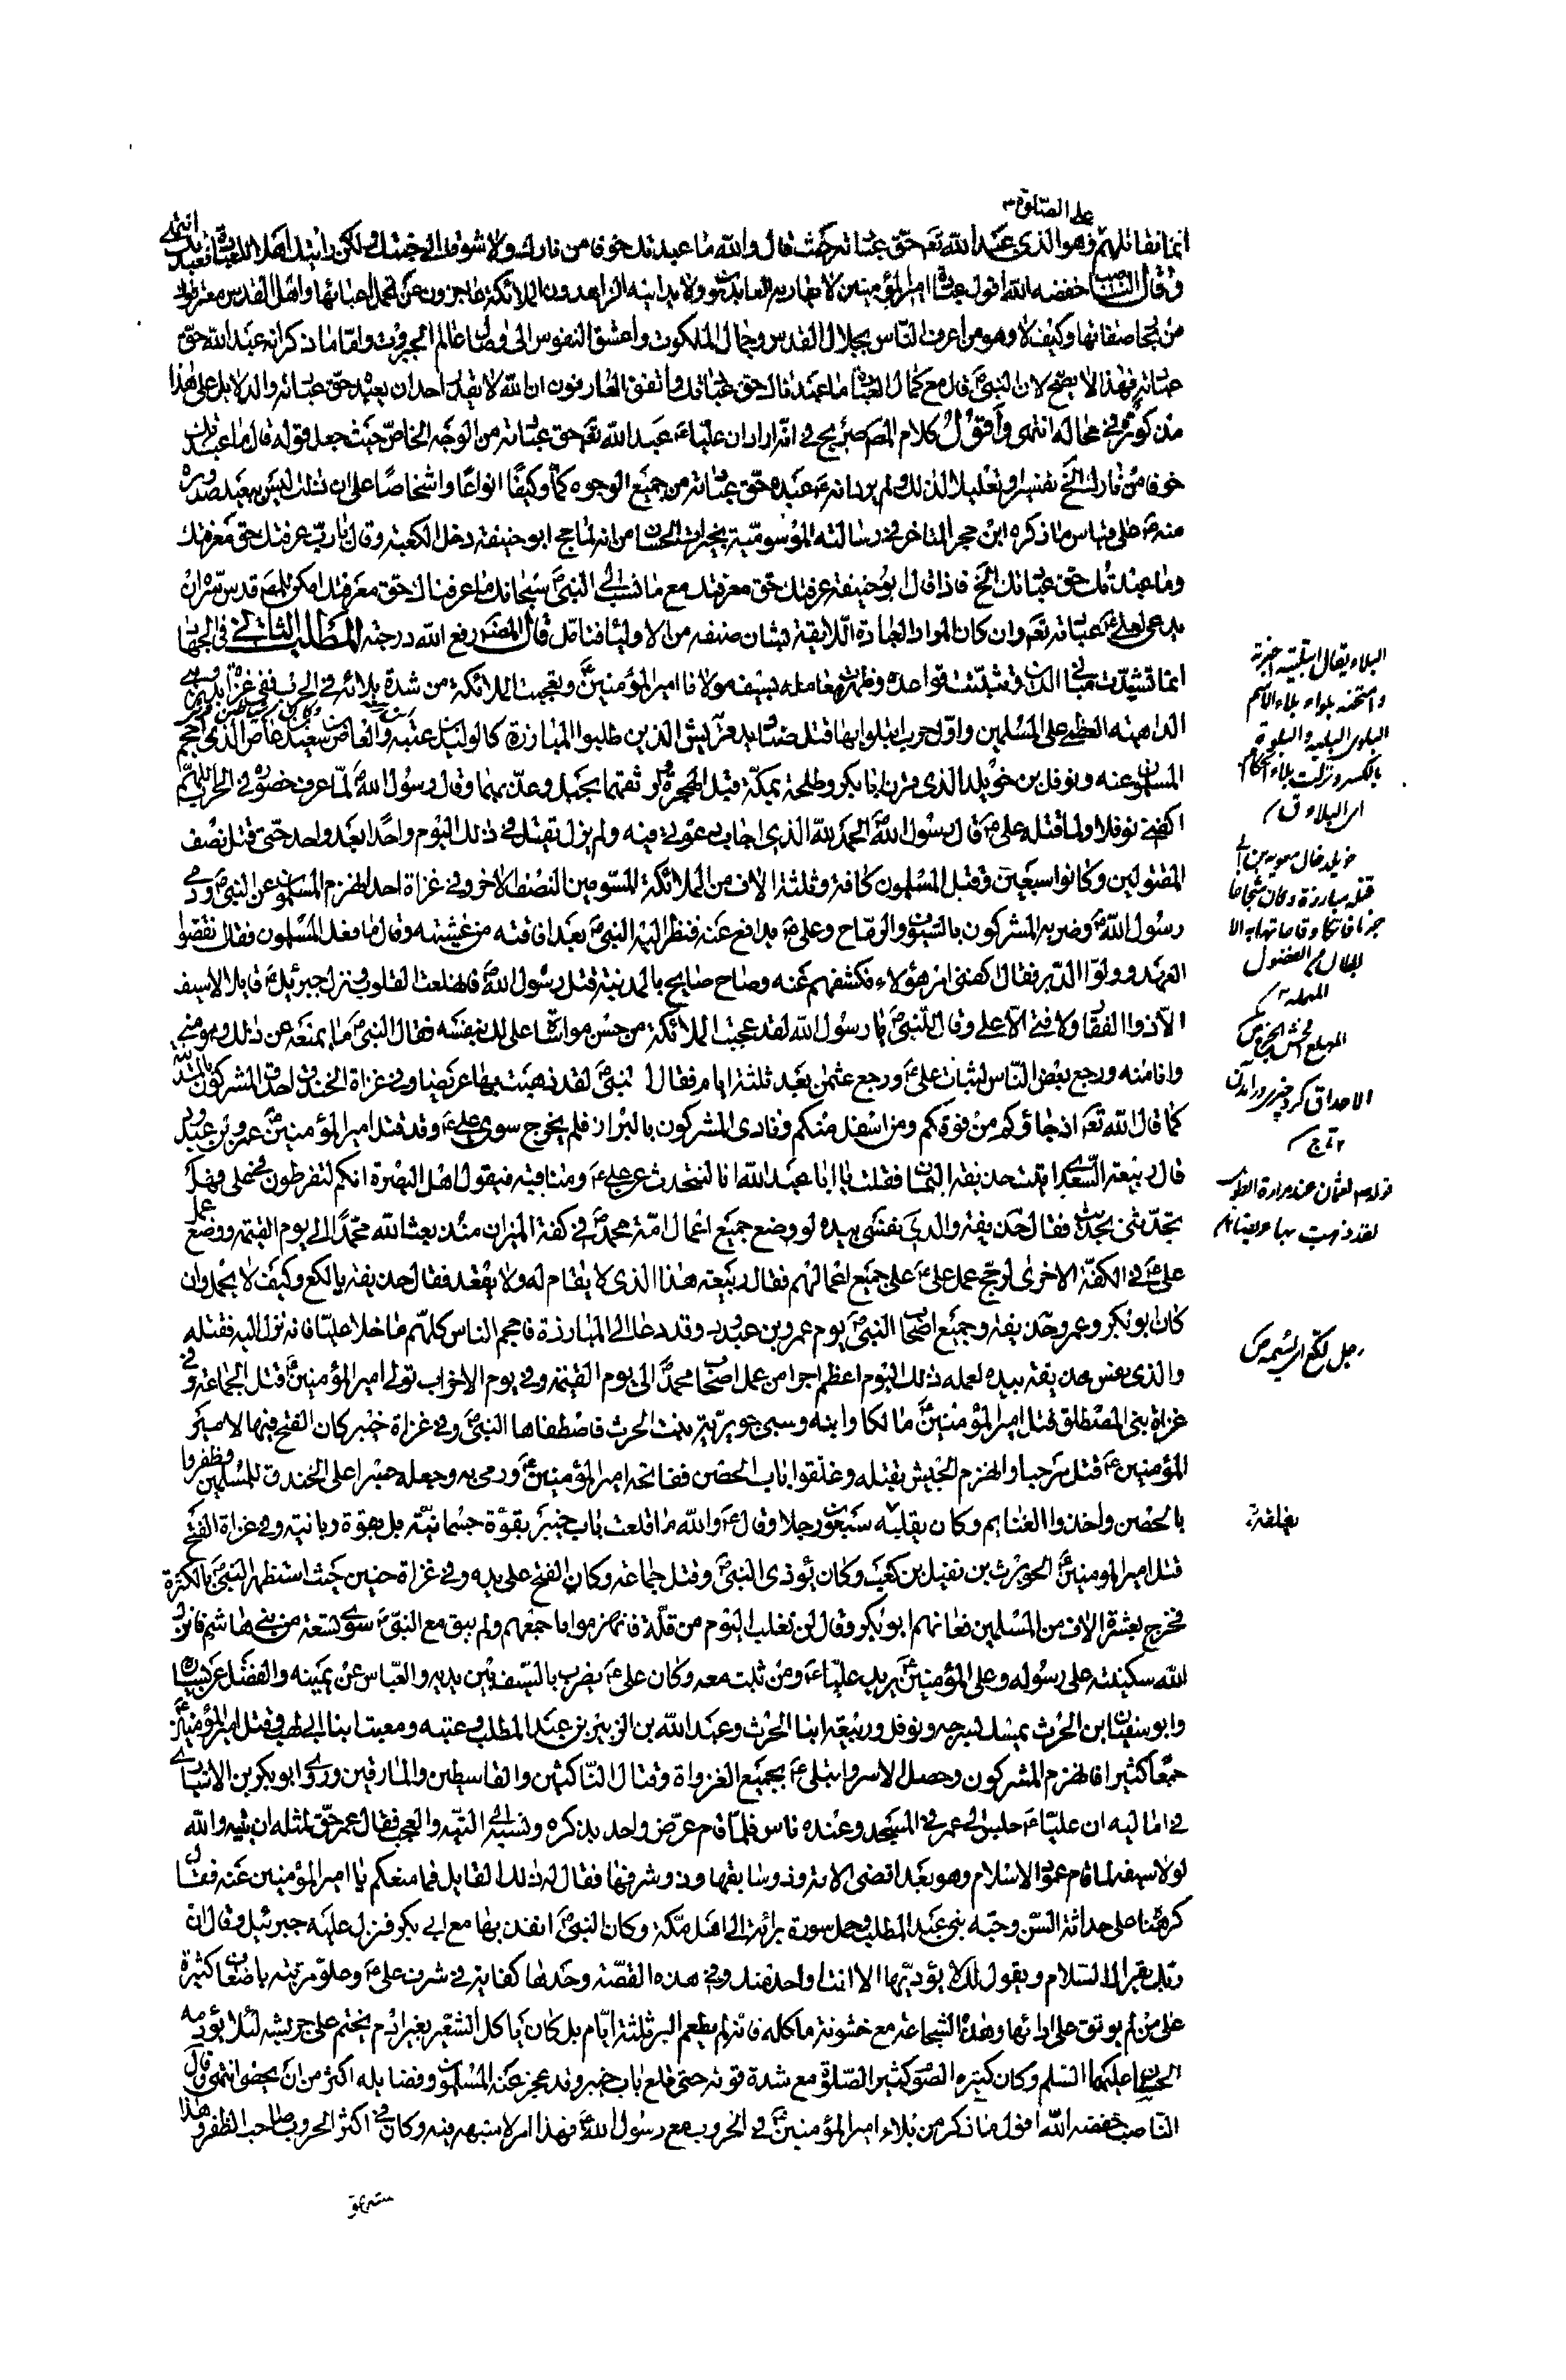 على الصلوة
انما نقاتلهم وهو الذى عبد الله تعه حق عبادته حيث قال والله ما عبدتك خوفا من نارك ولا شوقا الى جنتك ولكن رأيتك اهلا للعبادة فعبدتك انتهى
وقال الناصب خفضه الله اقول عبادة امير المؤمنين لا يقاربه العابدون ولا يدانيه الزاهدون الملائكة عاجزون عن تحمل اعبائها واهل القدس معترفون
من بحار صفائها وكيف لا وهو من اعرف الناس بجلال القدس وجمال الملكوت واعشق النفوس الى وصال عالم الجبروت واما ما ذكر انه عبد الله حق
عبادته فهذا لا يصح لان النبى ص قال مع كمال العبادة ما عبدناك حق عبادتك واتفق العارفون ان الله لا يقدر احد ان يعبده حق عبادته والدلائل على هذا
مذكورة في محاله انتهى وأقول كلام المص صريح في انه اراد ان عليا ع عبد الله تعه حق عبادته من الوجه الخاص حيث جعل قوله قال ما عبدتك
خوفا من نارك الخ تفسيرا وتعليلا لذلك ولم يرد انه ع عبده حق عبادته من جميع الوجوه كما وكيفا انواعا واشخاصا على ان ذلك ليس ببعيد صدوره
منه ع على قياس ما ذكره ابن حجر المتاخر في رسالته الموسومة بخيرات الحسان من انه لما حج ابو حنيفة دخل الكعبة وقال يا رب عرفتك حق معرفتك
وما عبدتك حق عبادتك الخ فاذا قال ابو حنيفة عرفتك حق معرفتك مع ما نسب الى النبى ص سبحانك ما عرفناك حق معرفتك امكن للمص قدس سره ان
يدعى لعلى ع عبادته تعه وان كان المواد العبادة اللايقة بشان صنفه من الاولياء فتامل قال المصنف رفع الله درجته المطلب الثاني في الجهاد
انما تشيدت مباني الدين وتثبتت قواعده وظهرت معالمه بسيف مولانا امير المؤمنين ع وتعجبت الملائكة من شدة بلائه في الحرب ففي غزاة بدر وهي
الداهية العظمى على المسلمين واول حرب ابتلوا بها قتل صناديد قريش الذين طلبوا المبارزة كالوليد بن عتبة والعاص بن سعيد بن عاص الذى احجم
المسلمون عنه ونوفل بن خويلد الذى قرن ابا بكر وطلحة بمكة قبل الهجرة واوثقهما بحبل وعذبهما وقال رسول الله ص لما عرف حضوره في الحرب اللهم
اكفني نوفلا ولما قتله على ع قال رسول الله ص الحمد لله الذى اجاب دعوتي فيه ولم يزل يقتل في ذلك اليوم واحدا بعد واحد حتى قتل نصف
المقتولين وكانوا سبعين وقتل المسلمون كافة وثلثة الاف من الملائكة المسومين النصف الاخر وفي غزاة احد انهزم المسلمون عن النبى ص ورمى
رسول الله ص وضربه المشركون بالسيوف والرماح وعلى ع يدافع عنه فنظر اليه النبى ص بعد افاقته من غشيته وقال ما فعل المسلمون فقال نقضوا
العهد وولوا الدبر فقال اكفني امر هؤلاء فكشفهم عنه وصاح صايح بالمدينة قتل رسول الله ص فانخلعت القلوب ونزل جبرئيل ع قايلا لا سيف
الا ذو الفقار ولا فتى الا على وقال للنبى ص يا رسول الله لقد عجبت الملائكة من حسن مواساة على لك بنفسه فقال النبى ص ما يمنعه عن ذلك وهو مني
وانا منه ورجع بعض الناس لثبات على ع ورجع عثمن بعد ثلثة ايام فقال له النبى لقد ذهبت بها عريضا وفي غزاة الخندق احدق المشركون بالمدينة
كما قال الله تعه اذ جاؤكم من فوقكم ومن اسفل منكم ونادى المشركون بالبراز فلم يخرج سوى على ع وقد قتل امير المؤمنين ع عمرو بن عبد ود
قال ربيعة السعدى اتيت حذيفة بن اليمان فقلت يا ابا عبد الله انا لنتحدث عن على ع ومناقبه فيقول اهل البصرة انكم لتفرطون في على فهل
تحدثني بحديث فقال حذيفة والذى نفسي بيده لو وضع جميع اعمال امة محمد ص في كفة الميزان منذ بعث الله محمدا الى يوم القيمة ووضع عمل
على ع في الكفة الاخرى لرجح عمل على ع على جميع اعمالهم فقال ربيعة هذا الذى لا يقام له ولا يقعد فقال حذيفة يا لكع وكيف لا يحمل واين
كان ابو بكر وعمر وحذيفة وجميع اصحاب النبى ص يوم عمرو بن عبد ود وقد دعا الى المبارزة فاحجم الناس كلهم ما خلا عليا فانه نزل اليه فقتله
والذى نفس حذيفة بيده لعمله ذلك اليوم اعظم اجرا من عمل اصحاب محمد ص الى يوم القيمة وفي يوم الاحزاب تولى امير المؤمنين ع قتل الجماعة وفي
غزاة بني المصطلق قتل امير المؤمنين ع مالكا وابنه وسبى جويرية بنت الحرث فاصطفاها النبى ص وفي غزاة خيبر كان الفتح فيها لامير
المؤمنين ع قتل مرحبا وانهزم الجيش بقتله وغلقوا باب الحصن ففتحه امير المؤمنين ع ورمى به وجعله جسرا على الخندق للمسلمين وظفروا
بالحصن واخذوا الغنايم وكان يقلبه سبعون رجلا وقال ع والله ما قلعت باب خيبر بقوة جسمانية بل بقوة ربانية وفي غزاة الفتح
قتل امير المؤمنين ع الحويرث بن نفيل بن كعب وكان يؤذى النبى ص وقتل جماعة وكان الفتح على يديه وفي غزاة حنين حيث استظهر النبى ص بالكثرة
فخرج بعشرة الاف من المسلمين فعانهم ابو بكر وقال لن نغلب اليوم من قلة فانهزموا باجمعهم ولم يبق مع النبى ص سوى تسعة من بني هاشم فانزل
الله سكينته على رسوله وعلى المؤمنين يريد عليا ع ومن ثبت معه وكان على ع يضرب بالسيف بين يديه والعباس عن يمينه والفضل عن يساره
وابو سفيان ابن الحرث يمسك لسرجه ونوفل وربيعة ابنا الحرث وعبد الله بن الزبير بن عبد المطلب وعتبة ومعتب ابنا ابي لهب وقتل امير المؤمنين ع
جمعا كثيرا فانهزم المشركون وحصل الاسر وابتلى ع بجميع الغزواة وقتال الناكثين والقاسطين والمارقين وروى ابو بكر بن الانباري
في اماليه ان عليا ع جلس الى عمر في المسجد وعنده ناس فلما قام عرض واحد بذكره ونسبه الى التيه والعجب فقال عمر حق لمثله ان يتيه والله
لولا سيفه لما قام عمود الاسلام وهو بعد اقضى الامة وذو سابقها وذو شرفها فقال له ذلك القايل فما منعكم يا امير المؤمنين عنه فقال
كرهناه على حداثة السن وحبه بني عبد المطلب وحمل سورة برائة الى اهل مكة وكان النبى ص انفذ بها مع ابي بكر فنزل عليه جبرئيل وقال ان
ربك يقرأك السلام ويقول لك لا يؤديها الا انت او واحد منك وفي هذه القصة وحدها كفاية في شرف على ع وعلو مرتبته باضعاف كثيرة
على من لم يوثق على ادائها وهذه الشجاعة مع خشونة ماكله فانه لم يطعم البر ثلثة ايام بل كان ياكل الشعير بغير ادم يختم على جريشه لئلا يؤدمه
الحسنان عليهما السلم وكان كثير الصوم كثير الصلوة مع شدة قوته حتى قلع باب خيبر وقد عجز عنه المسلمون وفضايله اكثر من ان يحصى انتهى وقال
الناصب خفضه الله اقول ما ذكر من بلاء امير المؤمنين ع في الحروب مع رسول الله ص فهذا امر لا شبهة فيه وكان في اكثر الحروب صاحب الظفر وهذا
البلاء يقال ابتليته اختبرته
وامتحنته بلواء بلاء الاسم
البلوى البلية والبلوة
بالكسر ونزلت بلاء الكفار
اى البلاء ق
قتل مبارزة وكان شجاعا
المهملة
رجل لكع اى لئيم ص